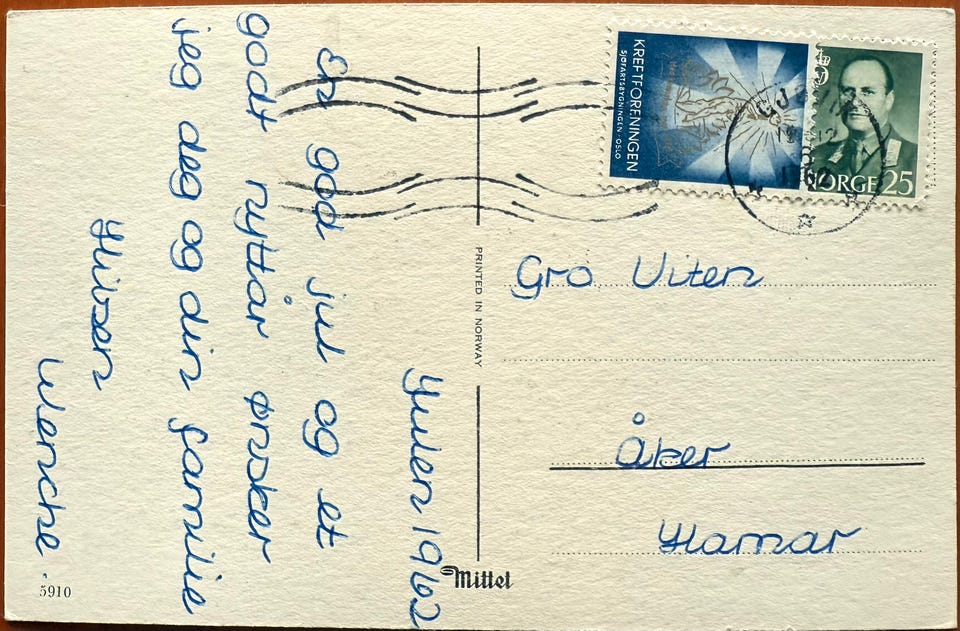 Julen 1962
En god jul og et
godt nyttår ønsker
jeg deg og din familie
Hilsen
Wenche.
5910
PRINTED IN NORWAY
Mittet
KREFTFORENINGEN
SJØFARTSBYGNINGEN · OSLO
NORGE 25
Gro Viten
Åker
Hamar